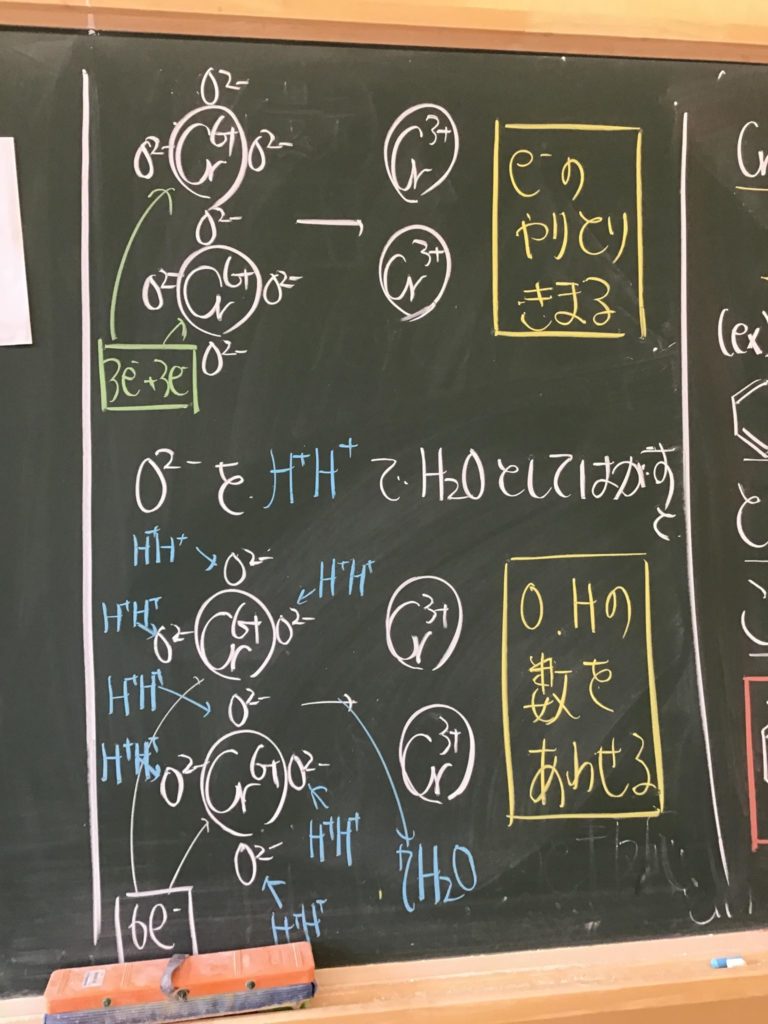 O²⁻
O²⁻ Cr⁶⁺ O²⁻
O²⁻
O²⁻ Cr⁶⁺ O²⁻
O²⁻
3e⁻+3e⁻
→
Cr³⁺
Cr³⁺
e⁻の
やりとり
きまる
O²⁻をH⁺H⁺でH₂Oとしてはがす
と
H⁺H⁺
O²⁻
H⁺H⁺
H⁺H⁺
O²⁻ Cr⁶⁺ O²⁻
H⁺H⁺
O²⁻
H⁺H⁺
O²⁻ Cr⁶⁺ O²⁻
H⁺H⁺
O²⁻
H⁺H⁺
6e⁻
→
Cr³⁺
Cr³⁺
7H₂O
O.Hの
数を
あわせる
(ex)